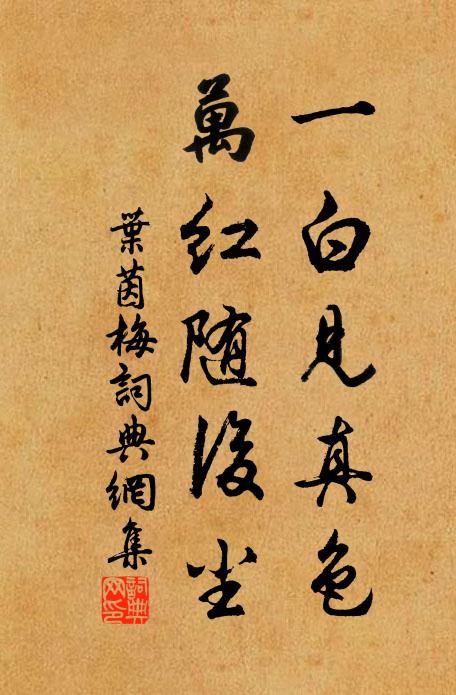 一白見真色
萬紅随後尘
葉茵梅詞典網集
詞典
网印